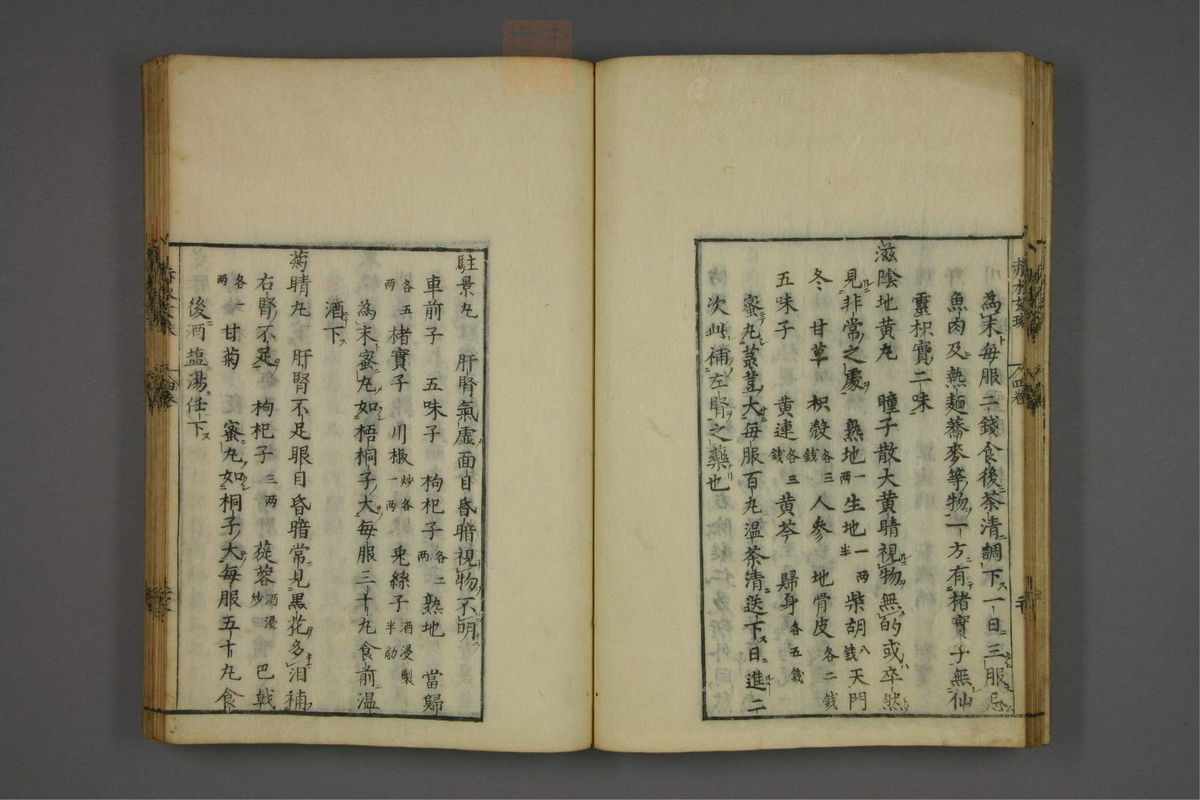 為末每服二錢食後茶清調下一日三服忌
魚肉及熱麵蕎麥等物一方有楮實子無仙
靈枳實二味
滋陰地黄丸　瞳子散大黄晴視物無的或卒然
見非常之處　熟地一兩生地一兩半柴胡八錢天門
冬　甘草　枳殻各三錢人參　地骨皮各二錢
五味子　黄連各三錢黄芩　歸身各五錢
蜜丸菉荳大每服百丸温茶清送下日進二
次此補左腎之藥也
駐景丸　肝腎氣虛面目昏暗視物不明
車前子　五味子　枸杞子各二兩熟地　當歸
各五兩楮實子　川椒炒各一兩兎絲子酒浸製半觔
為末蜜丸如梧桐子大每服三十丸食前温
酒下
菊睛丸　肝腎不足眼目昏暗常見黒花多泪補
右腎不足　枸杞子三兩　蓯蓉酒浸炒　巴戟
各一兩甘菊　蜜丸如桐子大每服五十丸食
後酒塩湯任下
赤水玄珠
四卷